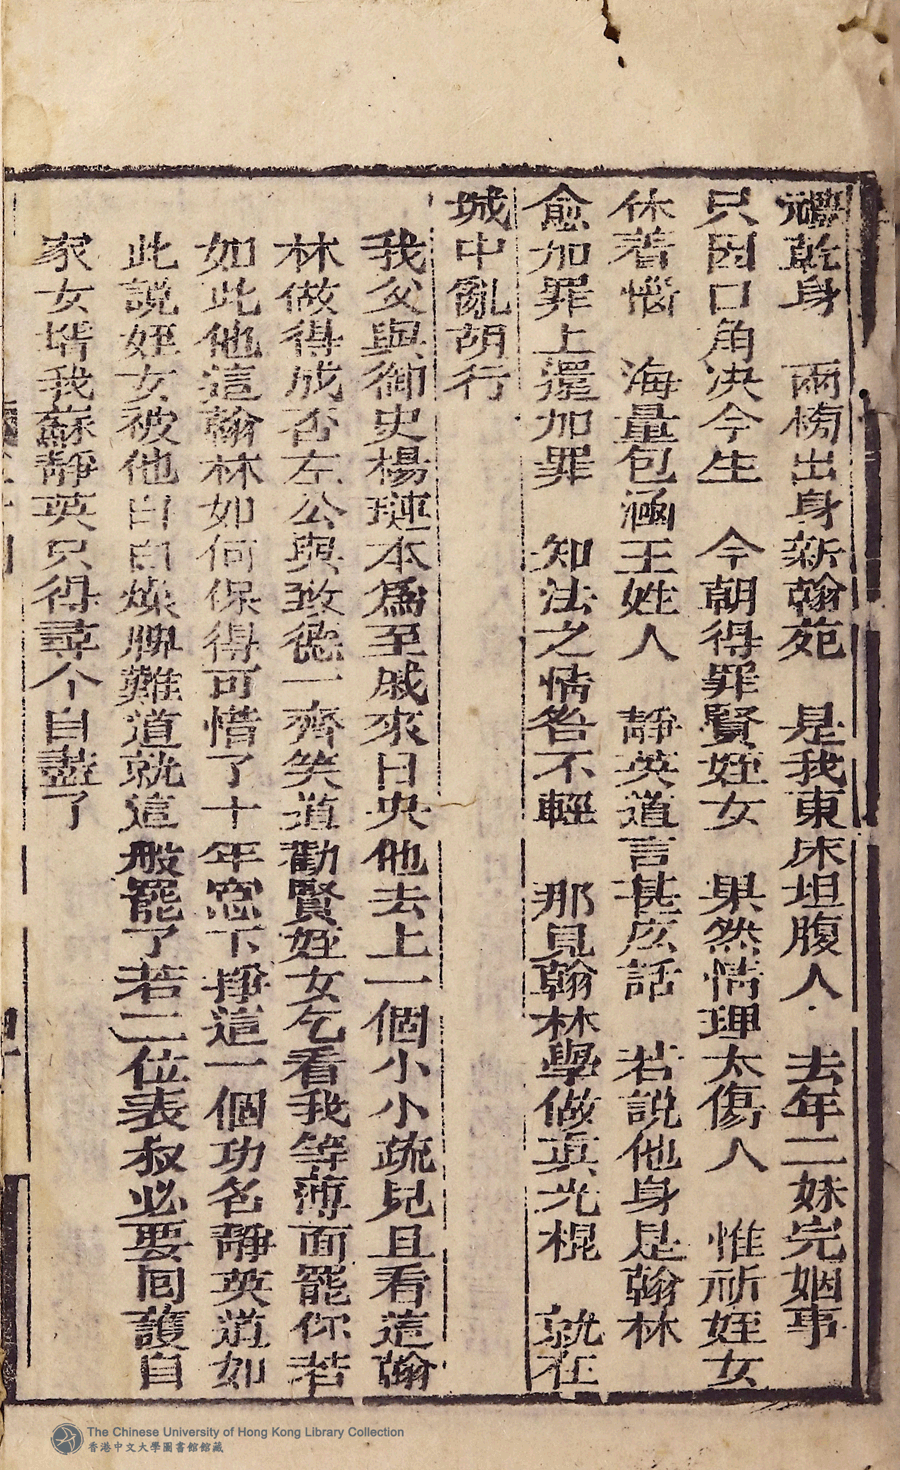 禮乾身　兩榜出身新翰苑　是我東床坦腹人　去年二妹完姻事
只因口角决今生　今朝得罪賢姪女　果然情理太傷人　惟祈姪女
休着惱　海量包涵王姓人　靜英道言甚庅話　若説他身是翰林
愈加罪上還加罪　知法之情咎不輕　那見翰林學做眞光棍　就在
城中亂胡行
我父與御史楊璉本爲至戚來日央他去上一個小小疏兒且看這翰
林做得成否左公與致德一齊笑道勸賢姪女乞看我等薄面罷你若
如此他這翰林如何保得可惜了十年窓下掙這一個功名靜英道如
此説姪女被他白白燥脾難道就這般罷了若二位表叔必要囘護自
家女壻我蘇靜英只得尋个自盡了
The Chinese University of Hong Kong Library Collection
香港中文大學圖書館館藏